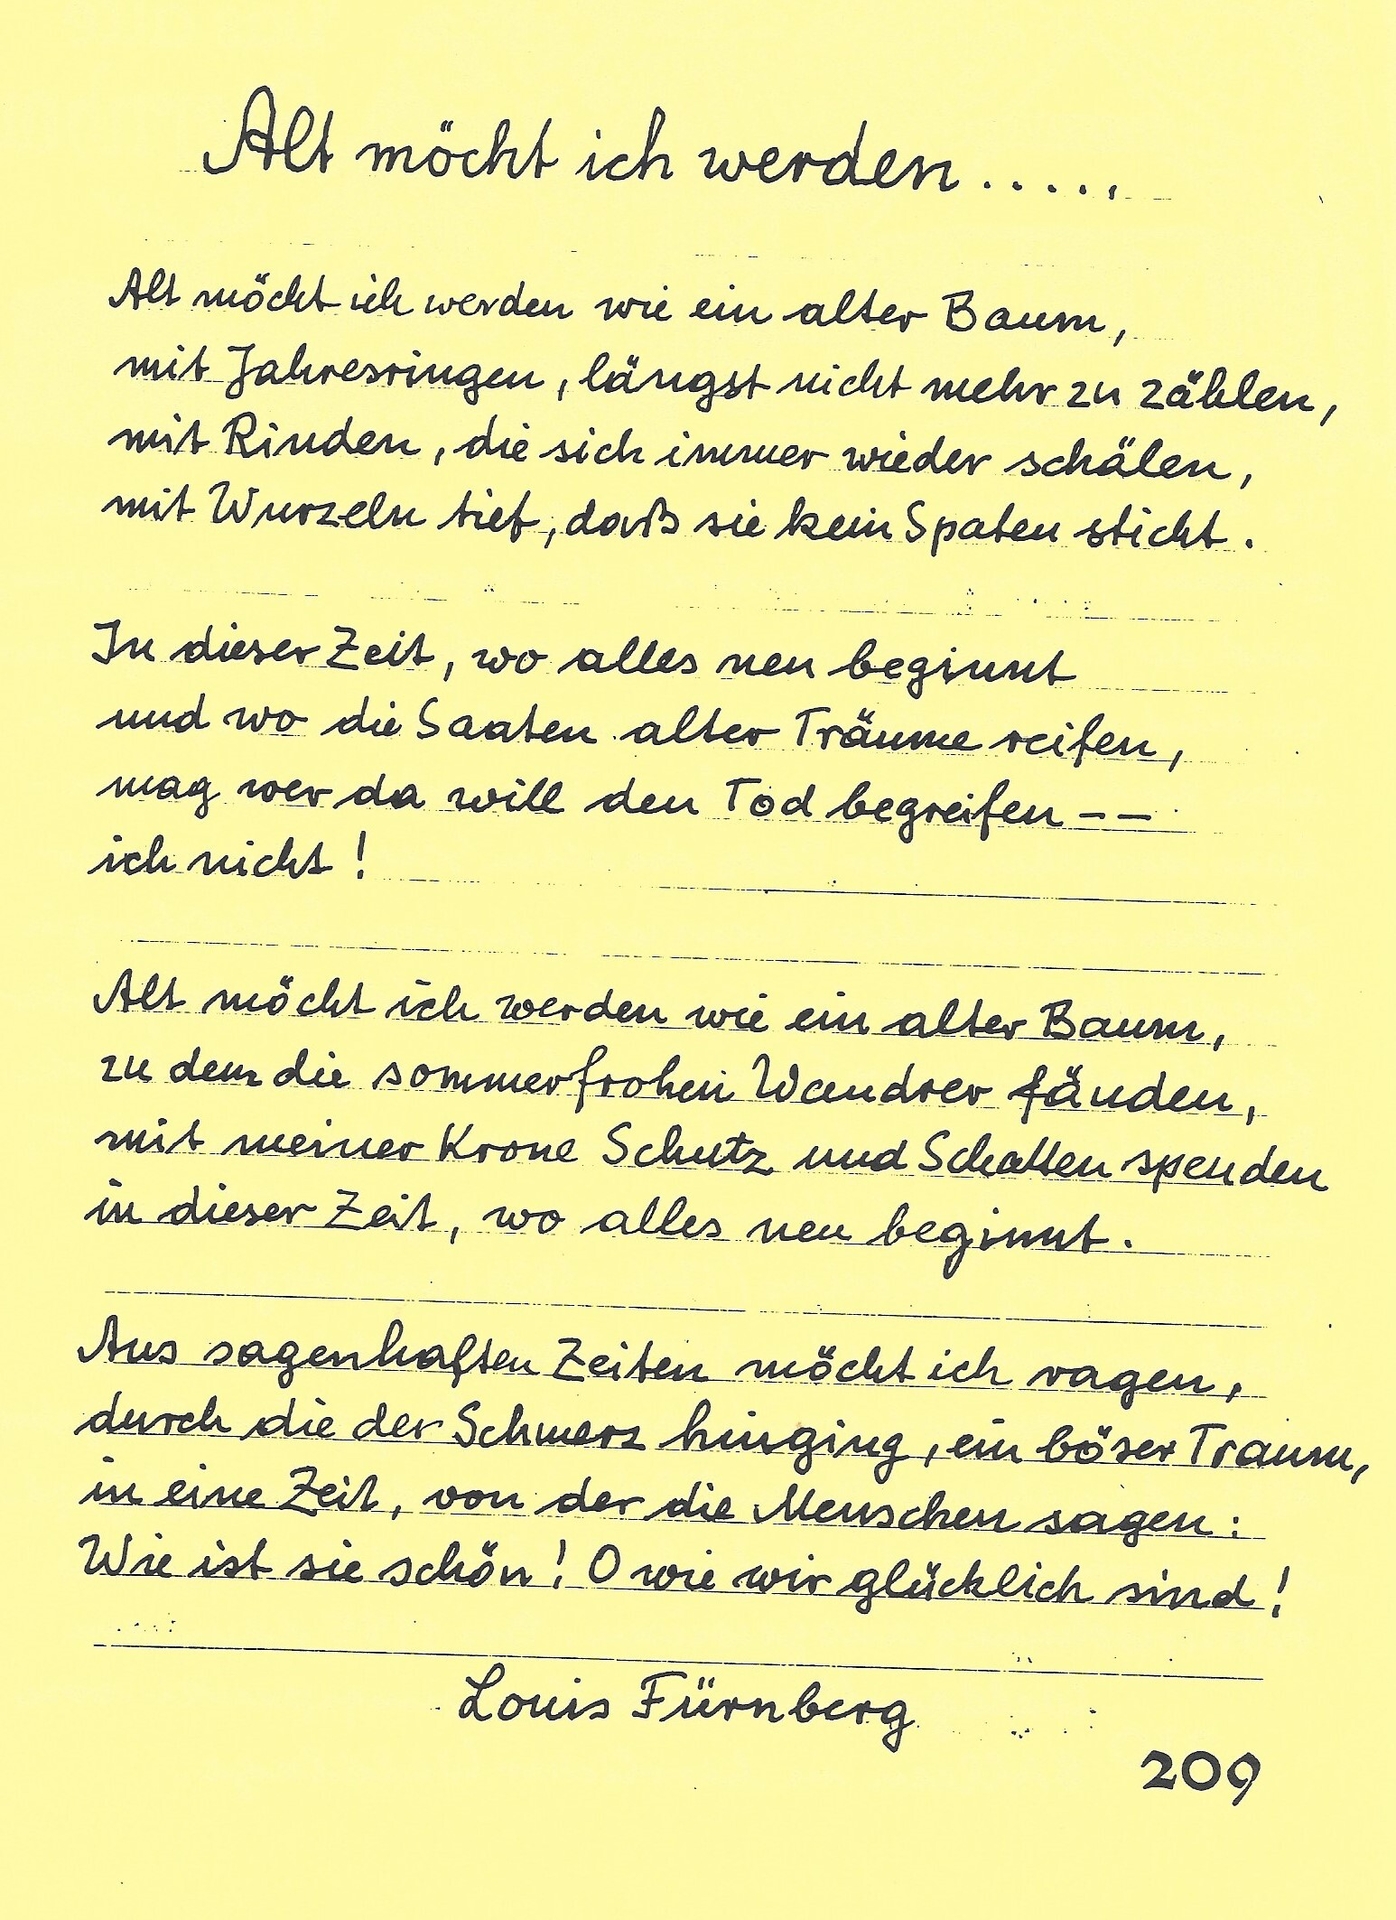 Alt möcht ich werden.....,
Alt möcht ich werden wie ein alter Baum,
mit Jahresringen, längst nicht mehr zu zählen,
mit Rinden, die sich immer wieder schälen,
mit Wurzeln tief, daß sie kein Spaten sticht.
In dieser Zeit, wo alles neu beginnt
und wo die Saaten alter Träume reifen,
mag wer da will den Tod begreifen — —
ich nicht!
Alt möcht ich werden wie ein alter Baum,
zu dem die sommerfrohen Wandrer fänden,
mit meiner Krone Schutz und Schatten spenden
in dieser Zeit, wo alles neu beginnt.
Aus sagenhaften Zeiten möcht ich ragen,
durch die der Schmerz hinging, ein böser Traum,
in eine Zeit, von der die Menschen sagen:
Wie ist sie schön! O wie wir glücklich sind!
Louis Fürnberg
209